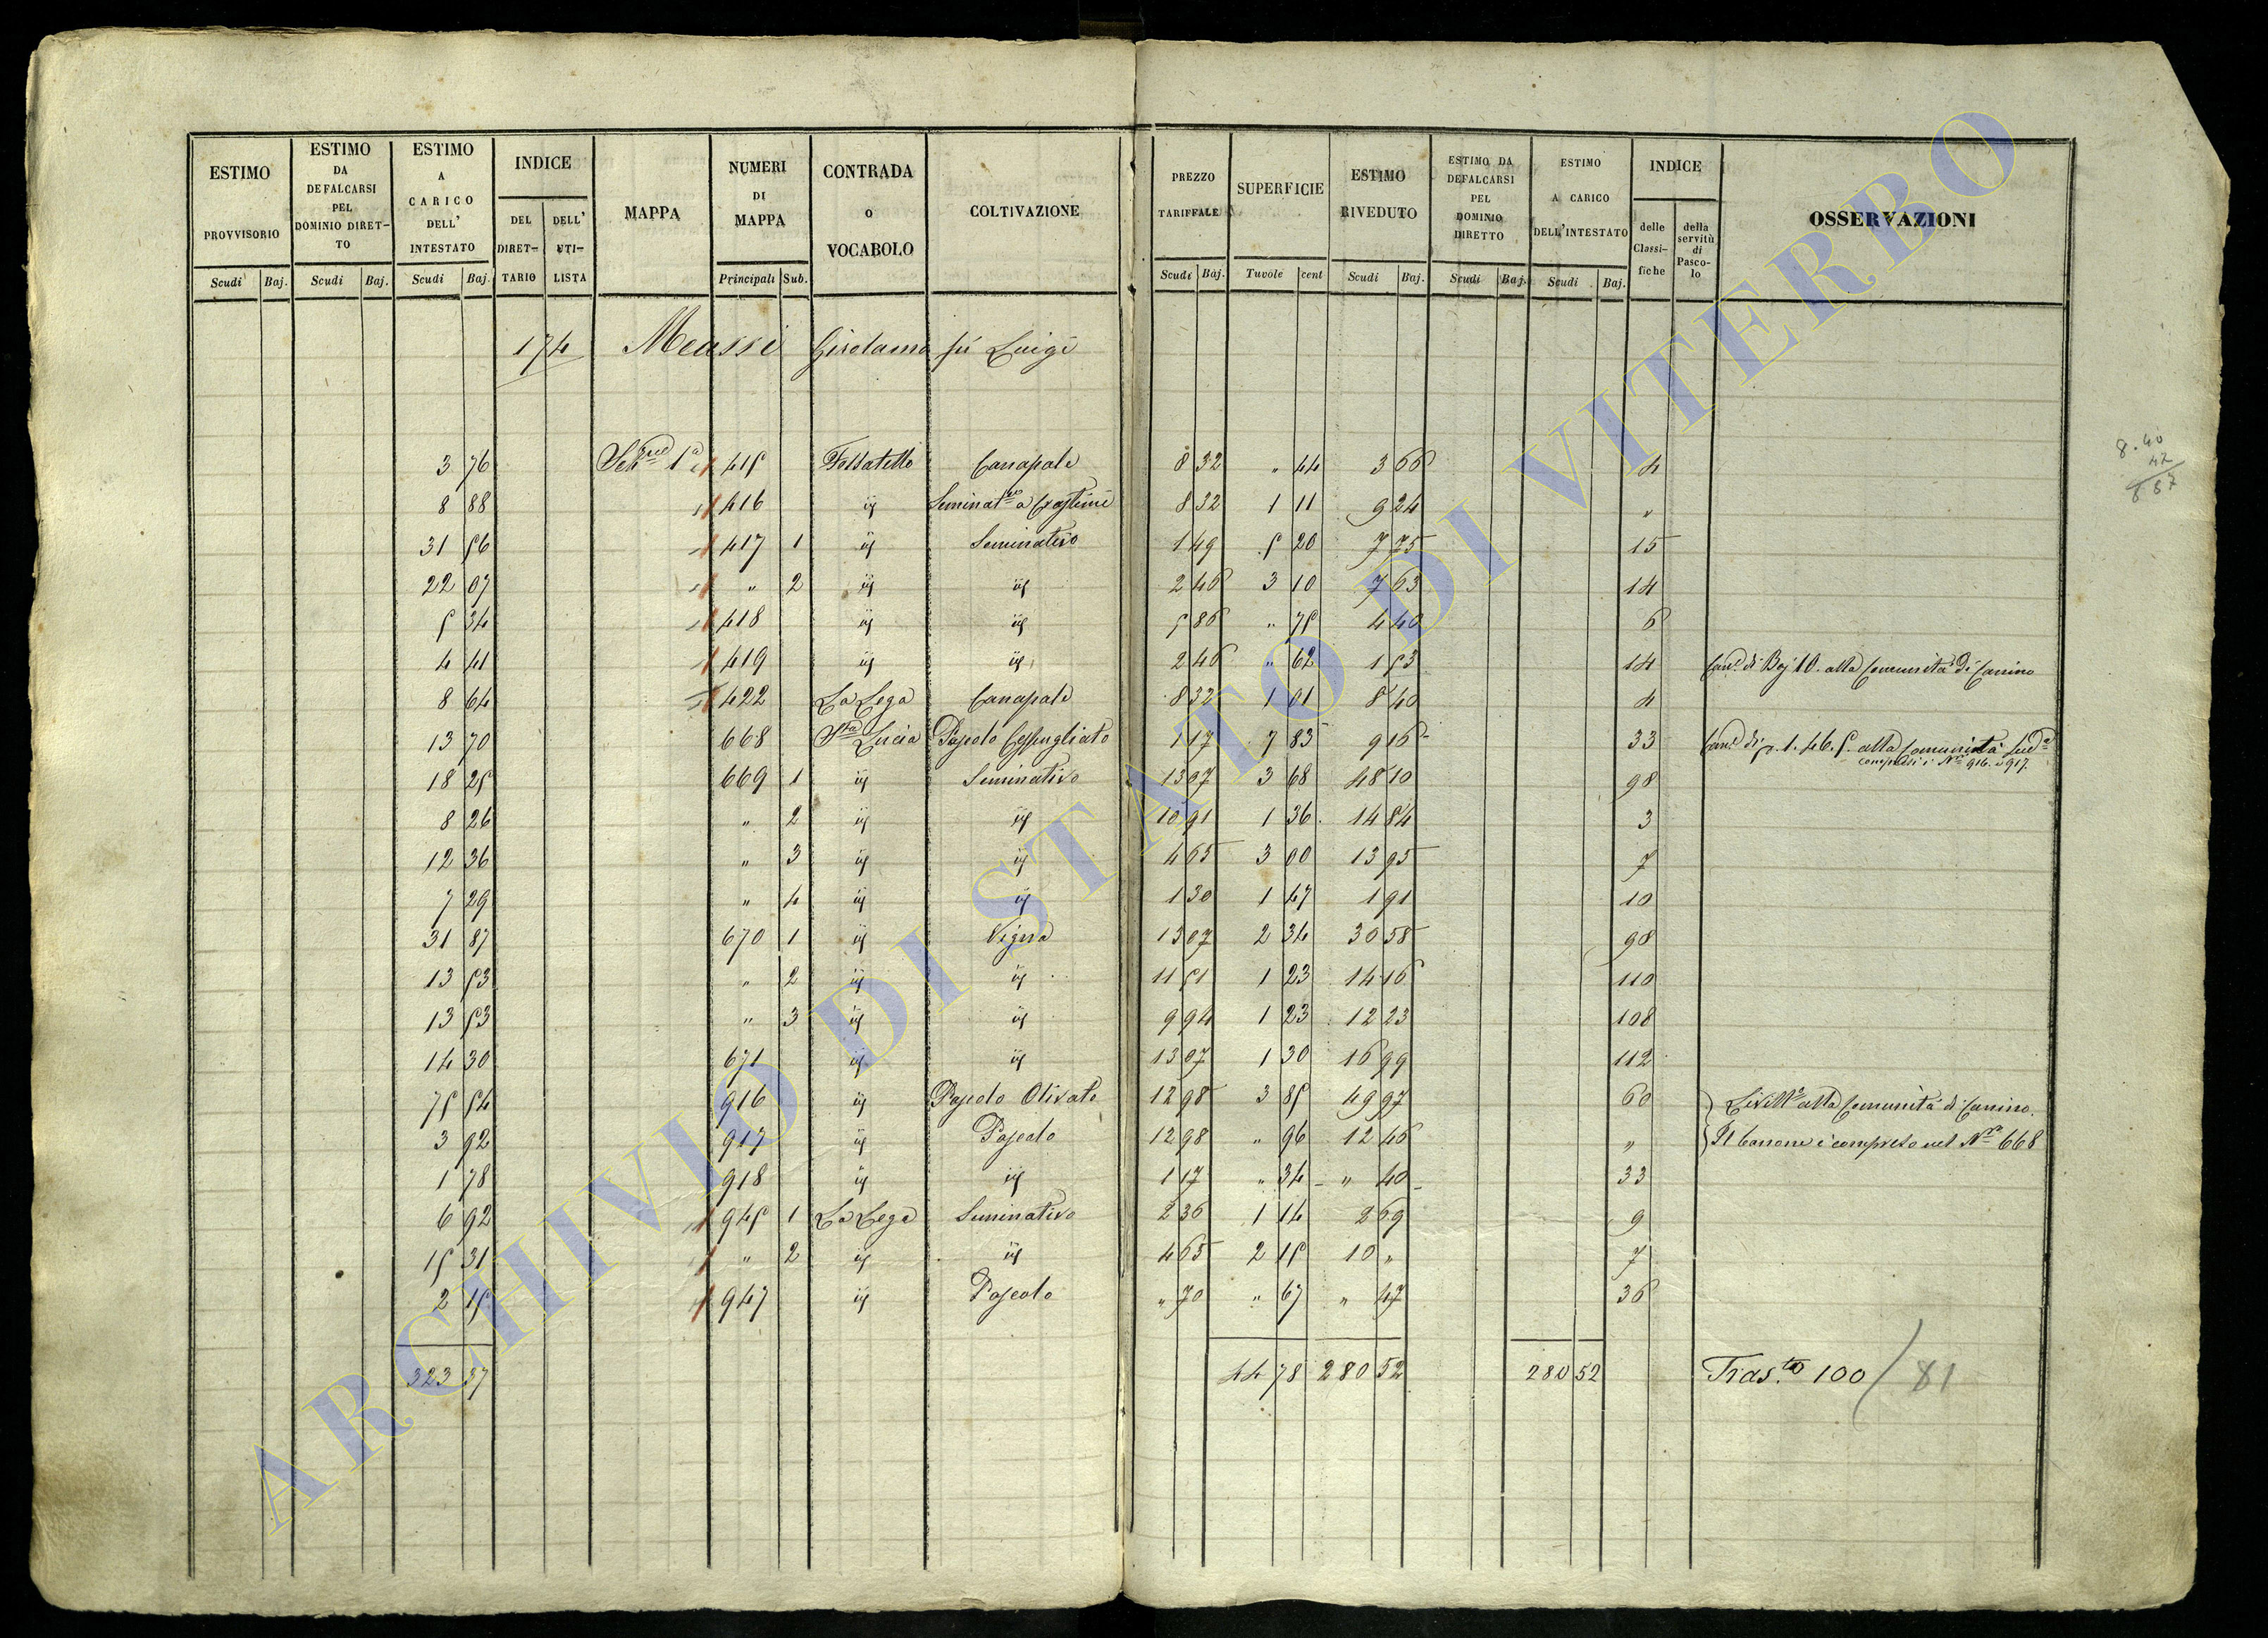 ESTIMO PROVVISORIO Scudi Baj. | ESTIMO DA DEFALCARSI PEL DOMINIO DIRETTO Scudi Baj. | ESTIMO A CARICO DELL' INTESTATO Scudi Baj. | INDICE DEL DIRETTARIO DELL' UTILISTA | MAPPA | NUMERI DI MAPPA Principali Sub. | CONTRADA O VOCABOLO | COLTIVAZIONE | PREZZO TARIFFALE Scudi Baj. | SUPERFICIE Tuvole cent | ESTIMO RIVEDUTO Scudi Baj. | ESTIMO DA DEFALCARSI PEL DOMINIO DIRETTO Scudi Baj. | ESTIMO A CARICO DELL'INTESTATO Scudi Baj. | INDICE delle Classifiche della servitù di Pascolo | OSSERVAZIONI
174 Meassi Girolamo fù Luigi
3 76 1ª 415 Fossatello Canapale 8 32 " 44 3 66 4
8 88 416 ij 8 32 1 11 9 24 "
31 56 417 1 ij Seminativo 1 49 5 20 7 75 15
22 07 " 2 ij ij 2 46 3 10 7 63 14
5 34 418 ij ij 5 86 " 75 4 40 6
4 41 419 ij ij 2 46 " 62 1 53 14 Can.e di Baj 10. alla Comunità di Canino
8 64 422 La Lega Canapale 8 32 1 01 8 40 4
13 70 668 S.ta Lucia Pascolo Cespugliato 1 17 7 83 9 16 33 Can.e di 1.46.5 alla Comunità sud.a
compresi i N.ri 916. e 917.
18 25 669 1 ij Seminativo 13 07 3 68 48 10 98
8 26 " 2 ij ij 10 91 1 36 14 84 3
12 36 " 3 ij ij 4 65 3 00 13 95 7
7 29 " 4 ij ij 1 30 1 47 1 91 10
31 87 670 1 ij Vigna 13 07 2 34 30 58 98
13 53 " 2 ij ij 11 51 1 23 14 16 110
13 53 " 3 ij ij 9 94 1 23 12 23 108
14 30 671 ij ij 13 07 1 30 16 99 112
75 54 916 ij Pascolo Olivato 12 98 3 85 49 97 60 Livell.a alla Comunità di Canino.
3 92 917 ij Pascolo 12 98 " 96 12 46 " Il Canone è compreso nel N.ro 668
1 78 918 ij ij 1 17 " 34 " 40 33
6 92 945 1 La Lega Seminativo 2 36 1 14 2 69 9
15 31 " 2 ij ij 4 65 2 15 10 " 7
2 15 947 ij Pascolo " 70 " 67 " 47 36
323 37 44 78 280 52 280 52 Tras.to 100 / 81
8.40
47
8 87
ARCHIVIO DI STATO DI VITERBO